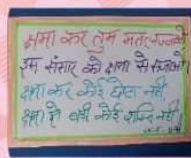 क्षमा कर तुम
इस संसार को क्षमा से सजाओ
क्षमा कर कोई छोटा नही
क्षमा से बडी कोई शक्ति नही